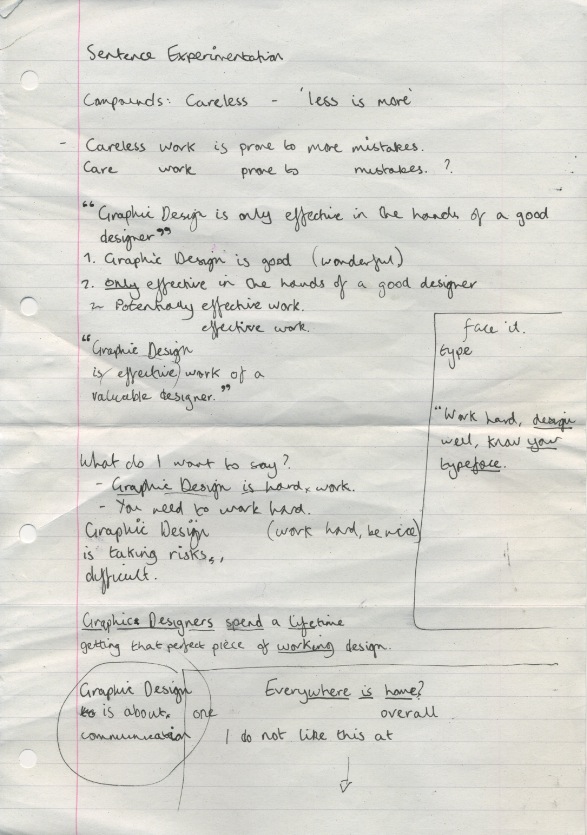 Sentence Experimentation
Compounds: Careless - 'less is more'
- Careless work is prone to more mistakes.
Care work prone to mistakes. ?
"Graphic Design is only effective in the hands of a good
designer"
1. Graphic Design is good (wonderful)
2. only effective in the hands of a good designer
2 Potentially effective work.
effective work.
"Graphic Design
is effective work of a
valuable designer."
face it.
type
"Work hard, design
well, know your
typeface.
What do I want to say?
- Graphic Design is hard work.
- You need to work hard.
Graphic Design (work hard, be nice)
is taking risks,
difficult.
Graphics Designers spend a lifetime
getting that perfect piece of working design.
Graphic Design
is about
communication
Everywhere is home?
one overall
I do not like this at